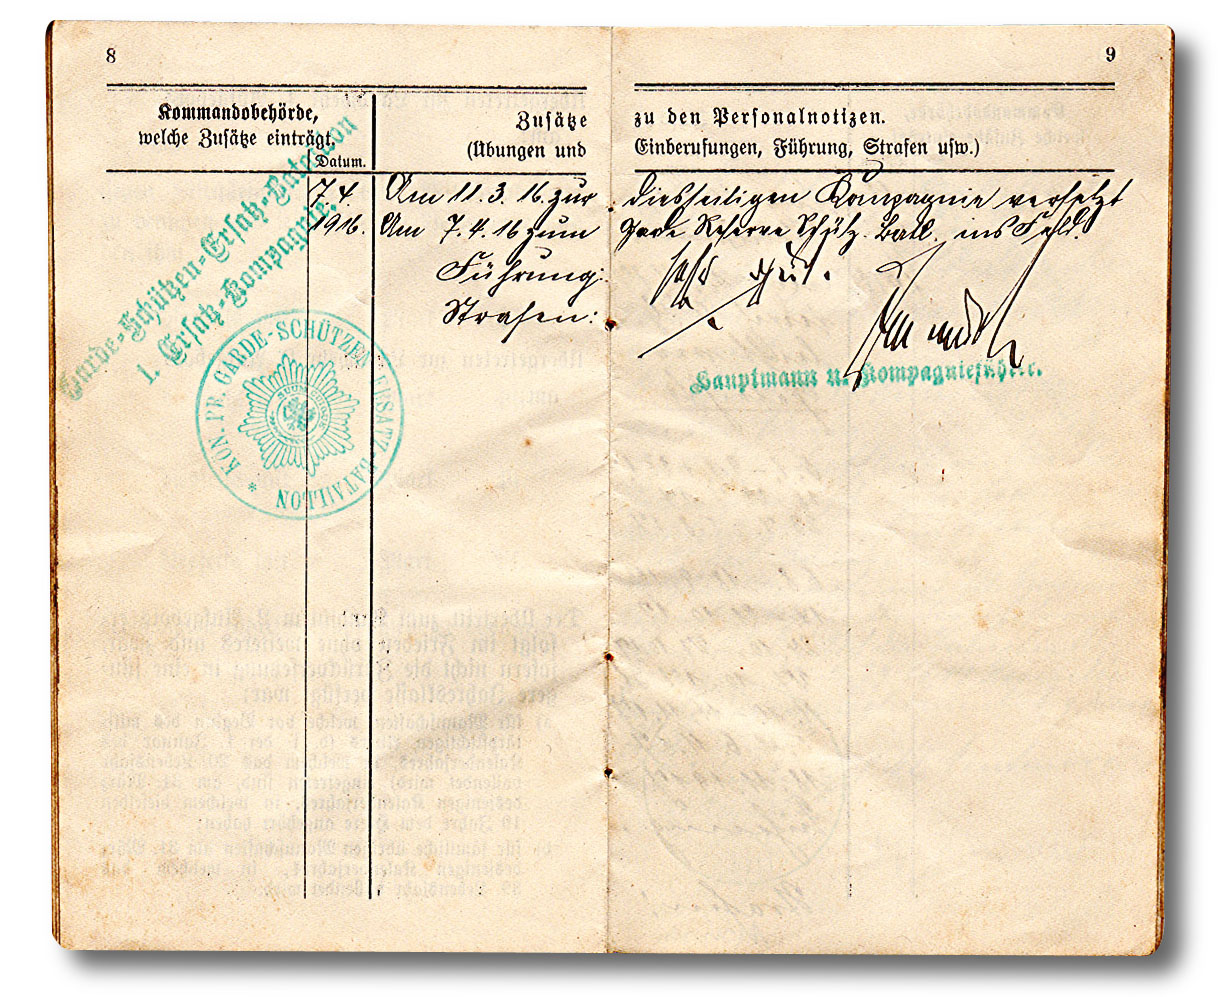 8
9
Kommandobehörde,
welche Zusätze einträgt.
Datum.
Zusätze zu den Personalnotizen.
(Übungen und Einberufungen, Führung, Strafen usw.)
Garde-Schützen-Ersatz-Bataillon
1. Ersatz-Kompagnie.
7.4. Am 11.3.16. zur diesseitigen Kompagnie versetzt
1916. Am 7.4.16 zum Garde Reserve Schütz. Batl. ins Feld.
Führung: sehr gut.
Strafen: /.
Hauptmann u. Kompagnieführer.
KÖN. PR. GARDE-SCHÜTZEN ERSATZ BATAILLON *